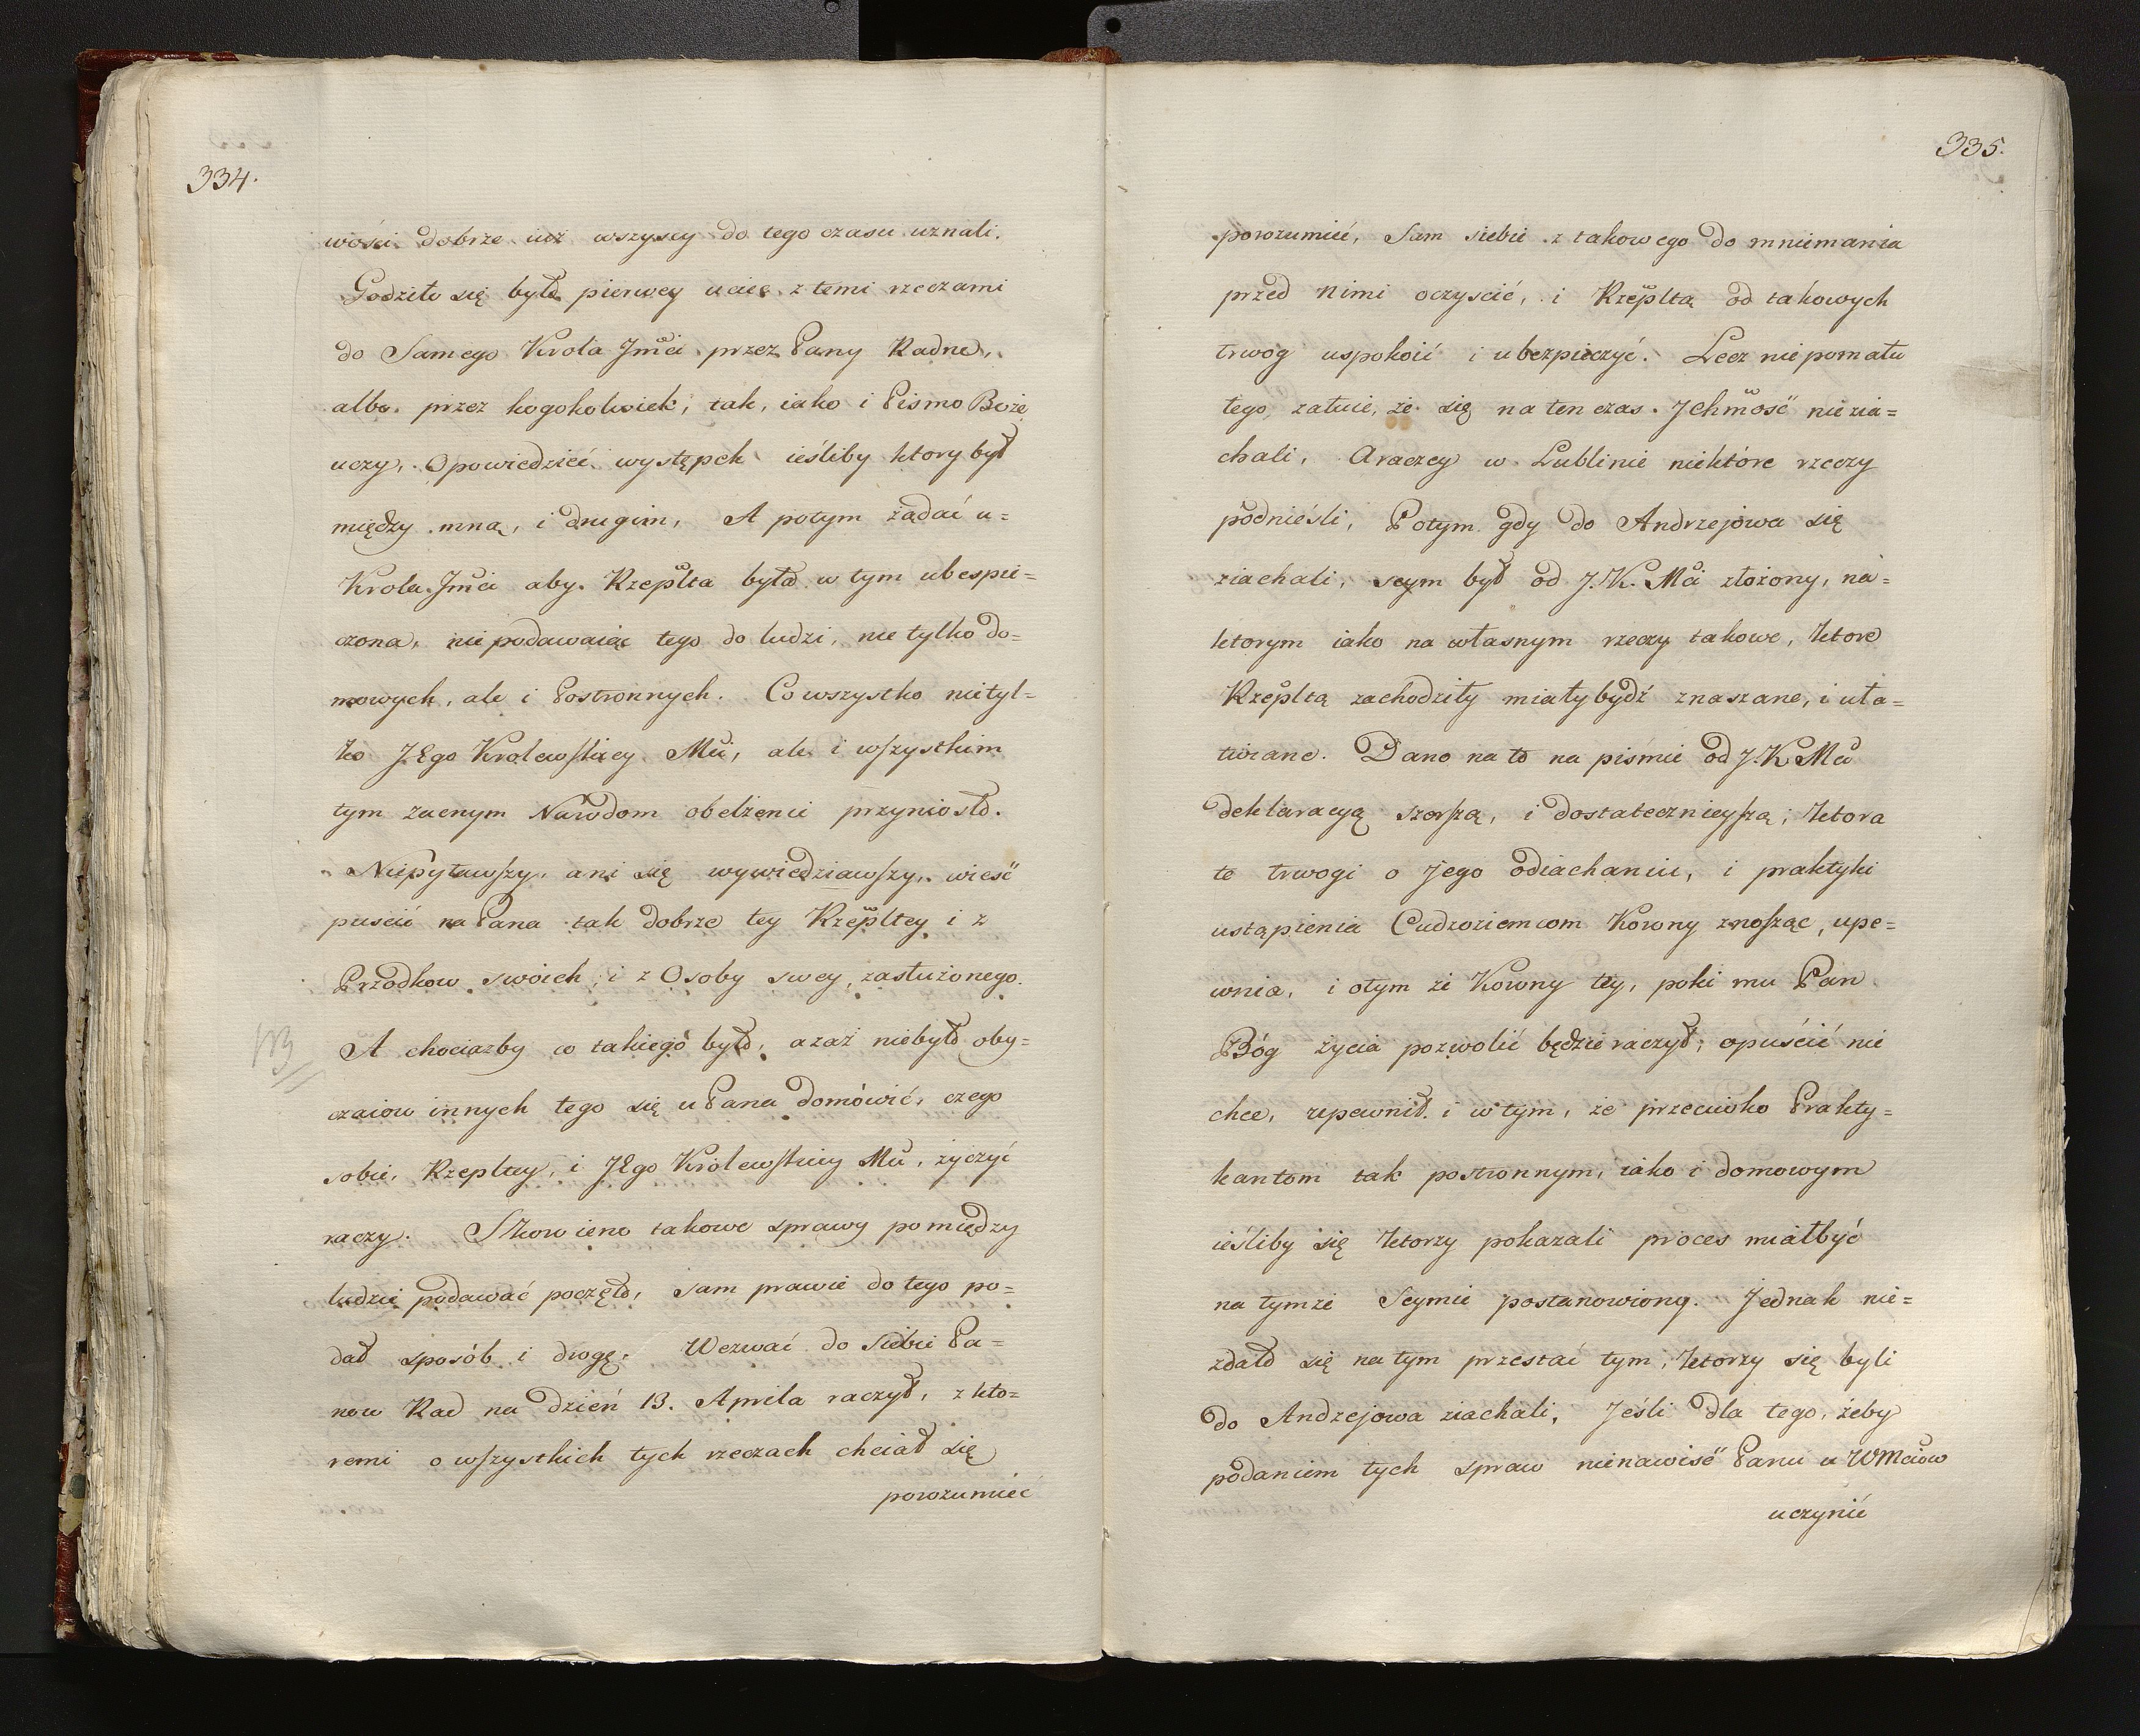 334.
wości dobrze iuż wszyscy do tego czasu uznali.
Godziło się było pierwey uciec z temi rzeczami
do Samego Krola Jmci przez Pany Radne,
albo przez kogokolwiek, tak, iako i Pismo Boże
uczy, Opowiedzieć występek ieśliby ktory był
między mną, i drugim, A potym żądać u=
Krola Jmci aby Rzeplta była w tym ubespie=
czona, niepodawaiąc tego do ludzi, nie tylko do=
mowych, ale i Postronnych. Co wszystko nietyl=
ko JEgo Krolewskiey Mci, ale i wszystkim
tym zacnym Narodom obelżenie przyniosło.
Niepytawszy, ani się wywiedziawszy, wieść
puścić na Pana tak dobrze tey Rzepltey i z
Przodkow swoich, i z Osoby swey, zasłużonego.
NB
A chociazby co takiego było, azaż niebyło oby=
czaiow innych tego się u Pana domówić, czego
sobie, Rzepltey, i JEgo Królewskiey Mci, życzyć
raczy. Skorv ieno takowe sprawy pomiędzy
ludzie podawać poczęto, sam prawie do tego po=
dał sposób i drogę. Wezwać do siebie Pa=
now Rad na dzień 13. Aprila raczył, z kto=
remi o wszystkich tych rzeczach chciał się
porozumieć
335.
porozumieć, Sam siebie z takowego do mniemania
przed nimi oczyscić, i Rzepltą od takowych
trwog uspokoić i ubezpieczyć. Lecz niepomału
tego żałuie, że się na ten czas Jchmość niezia=
chali, A raczey w Lublinie niektóre rzeczy
podnieśli, Potym gdy do Andrzejowa się
ziachali, seym był od J.K. Mci złożony, na=
ktorym iako na własnym rzeczy takowe, ktore
Rzepltą zachodziły miały bydź znaszane, i uła=
twiane. Dano na to na piśmie od J.K Mci
deklaracyą szorszą, i dostatecznieyszą; ktora
te trwogi o Jego odiachaniu, i praktyki
ustąpienia Cudzoziemcom Korony znosząc, upe=
wnia, i otym że Korony tey, poki mu Pan
Bóg życia pozwolić będzie raczył; opuścić nie
chce, upewnił i w tym, że przeciwko Prakty=
kantom tak postronnym, iako i domowym
ieśliby się ktorzy pokazali proces miał być
na tymże Seymie postanowiony. Jednak nie=
zdało się na tym przestać tym, ktorzy się byli
do Andzejowa ziachali, Jeśli dla tego, żeby
podaniem tych spraw nienawiść Panu u WMciow
uczynić